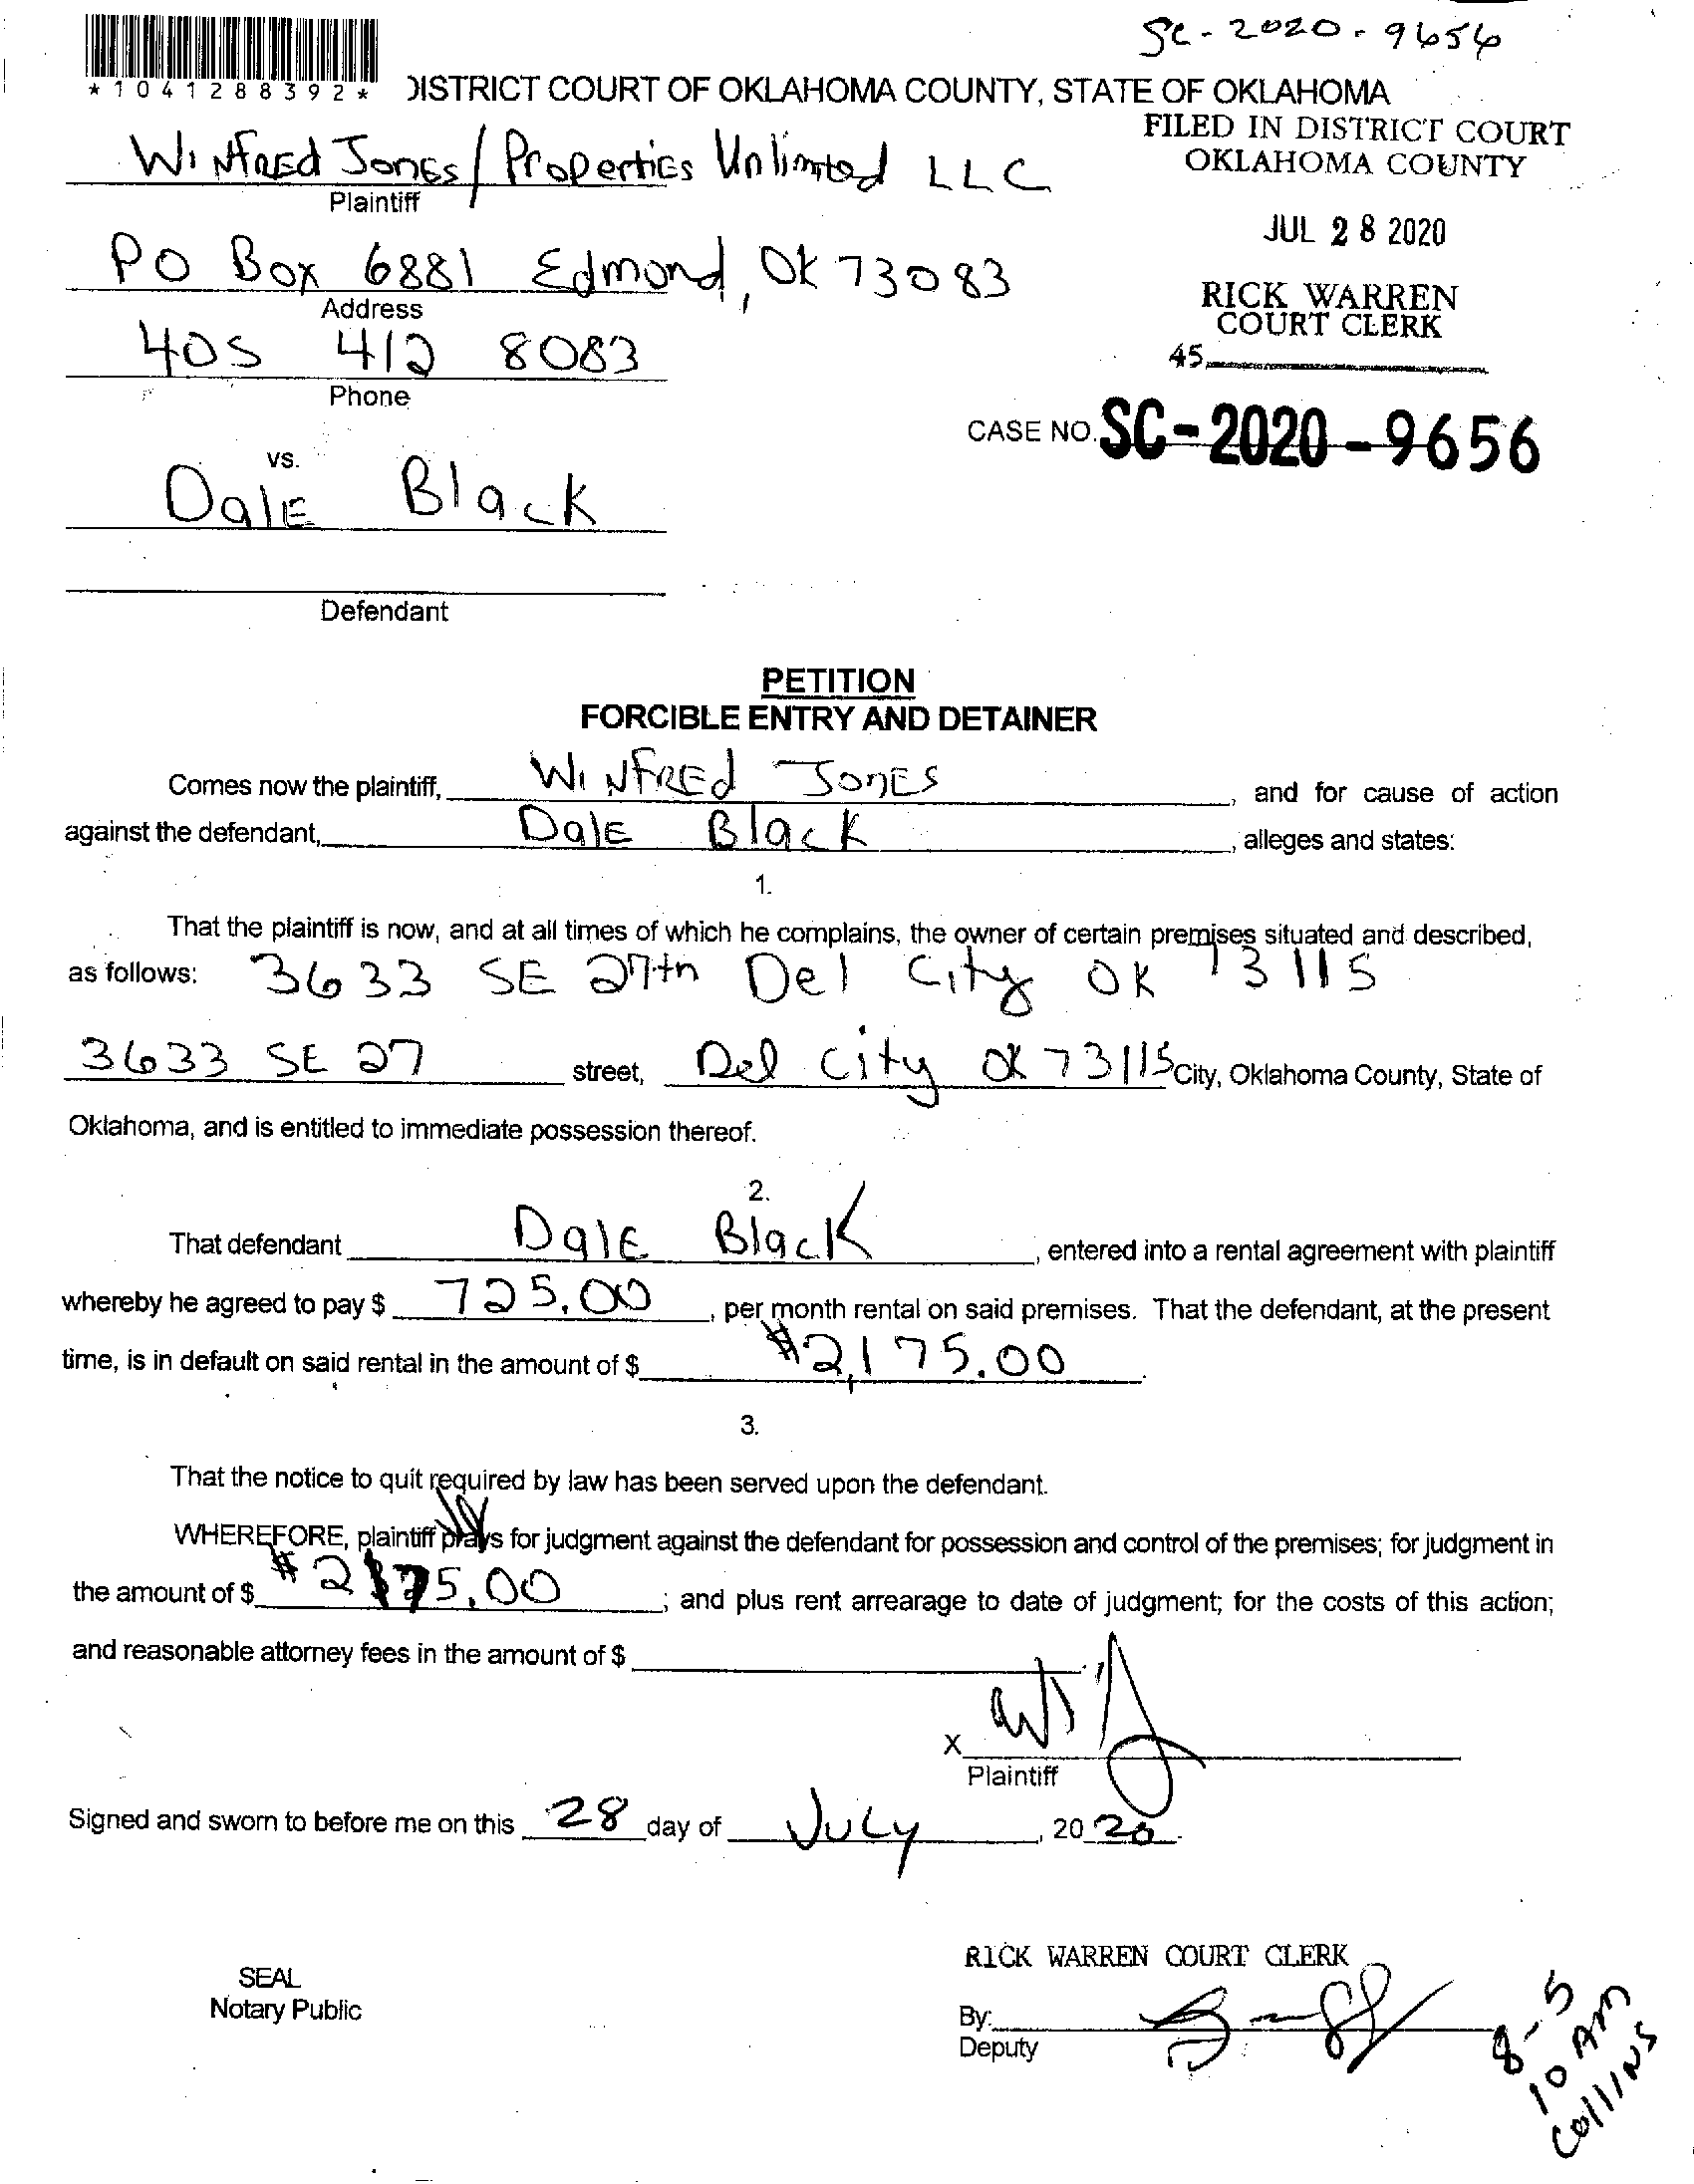 SC-2020-9656
*1041288392*
DISTRICT COURT OF OKLAHOMA COUNTY, STATE OF OKLAHOMA
FILED IN DISTRICT COURT
OKLAHOMA COUNTY
Winfred Jones/Properties Unlimited LLC
Plaintiff
JUL 28 2020
PO Box 6881 Edmond, OK 73083
Address
RICK WARREN
COURT CLERK
405 412 8083
Phone
45
CASE NO. SC-2020-9656
vs.
Dale Black
Defendant
PETITION
FORCIBLE ENTRY AND DETAINER
Comes now the plaintiff, Winfred Jones, and for cause of action
against the defendant, Dale Black, alleges and states:
1.
That the plaintiff is now, and at all times of which he complains, the owner of certain premises situated and described,
as follows: 3633 SE 27th Del City OK 73115
3633 SE 27 street, Del City OK 73115 City, Oklahoma County, State of
Oklahoma, and is entitled to immediate possession thereof.
2.
That defendant Dale Black, entered into a rental agreement with plaintiff
whereby he agreed to pay $ 725.00, per month rental on said premises. That the defendant, at the present
time, is in default on said rental in the amount of $ $2,175.00.
3.
That the notice to quit required by law has been served upon the defendant.
WHEREFORE, plaintiff prays for judgment against the defendant for possession and control of the premises; for judgment in
the amount of $ $2175.00; and plus rent arrearage to date of judgment; for the costs of this action;
and reasonable attorney fees in the amount of $
X
Plaintiff
Signed and sworn to before me on this 28 day of July, 2020.
RICK WARREN COURT CLERK
SEAL
Notary Public
By:
Deputy
8-5
10 AM
Collins